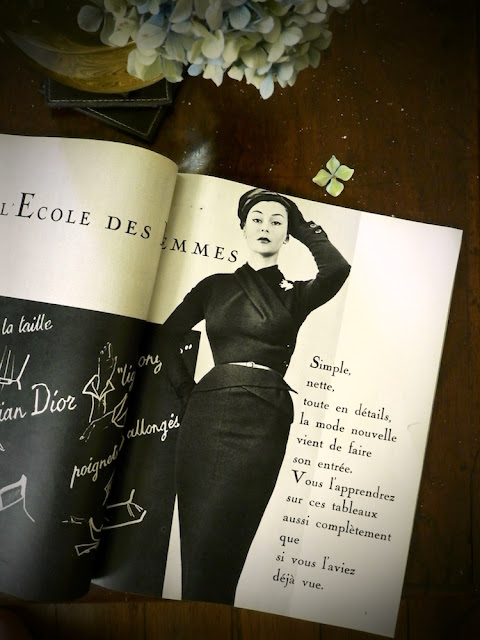 L'ECOLE DES FEMMES
la taille
ian Dior
"lig
ong
poignets
allongés
Simple,
nette,
toute en détails,
la mode nouvelle
vient de faire
son entrée.
Vous l'apprendrez
sur ces tableaux
aussi complètement
que
si vous l'aviez
déjà vue.